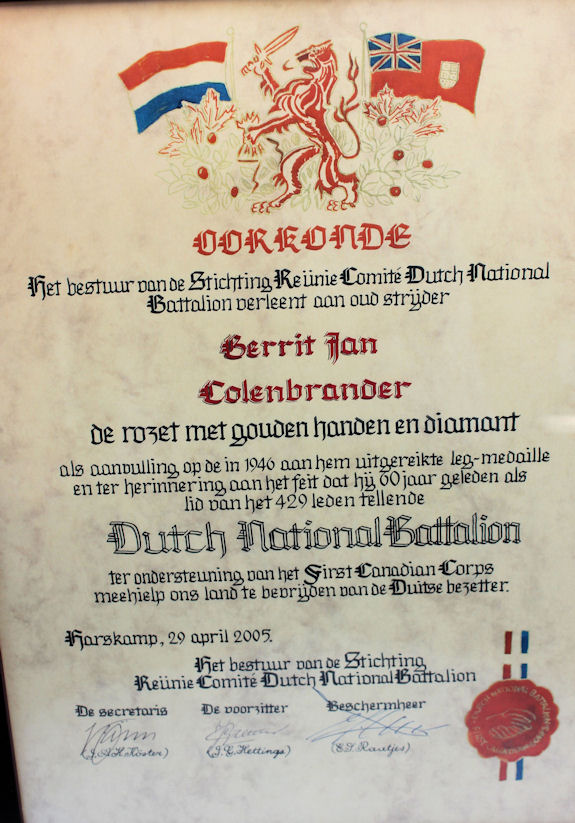 OORKONDE
Het bestuur van de Stichting Reünie Comité Dutch National
Battalion verleent aan oud strijder
Gerrit Jan
Colenbrander
de rozet met gouden handen en diamant
als aanvulling op de in 1946 aan hem uitgereikte leg-medaille
en ter herinnering aan het feit dat hij 60 jaar geleden als
lid van het 429 leden tellende
Dutch National Battalion
ter ondersteuning van het First Canadian Corps
meehielp ons land te bevrijden van de Duitse bezetter.
Harskamp, 29 april 2005.
Het bestuur van de Stichting
Reünie Comité Dutch National Battalion
De secretaris De voorzitter Beschermheer
(J.A.H. Köster) (J.G. Hettinga) (E.J. Raatjes)
DUTCH NATIONAL BATTALION
FIRST CANADIAN CORPS